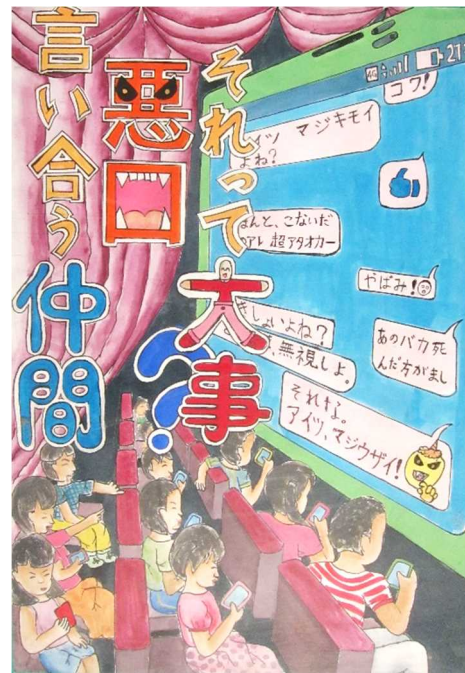 それって大事？
悪口
言い合う
仲間
4G 21
コワ！
イツ マジキモイ
よね？
ほんと、こないだ
アレ 超アタオカー
やばみ！
きしょいよね？
、無視しよ。
あのバカ死
んだ方がまし
それな。
アイツ、マジウザイ！